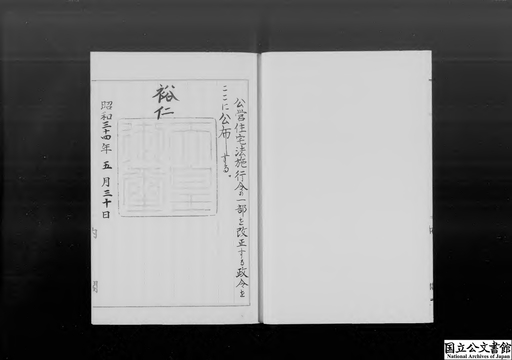 公営住宅法施行令の一部を改正する政令を
ここに公布する。
裕仁
昭和三十四年五月三十日
内閣
国立公文書館
National Archives of Japan